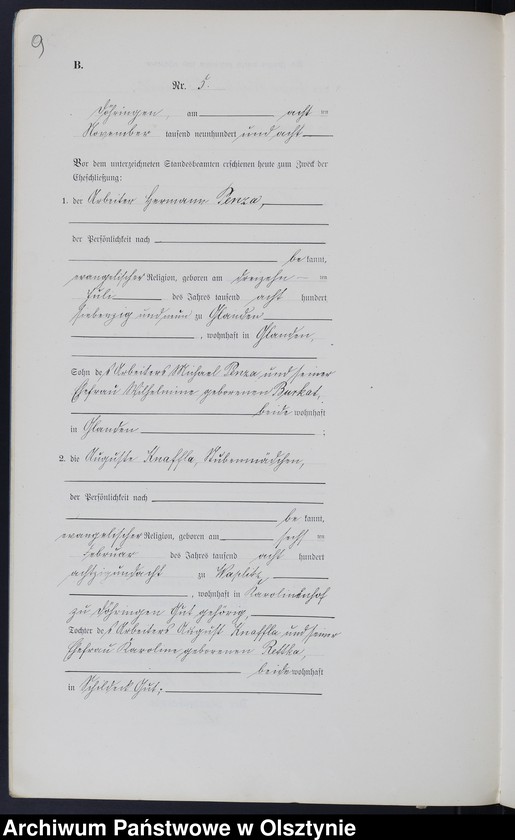 9
B.
Nr. 5.
Döhringen, am acht ten
November tausend neunhundert und acht
Vor dem unterzeichneten Standesbeamten erschienen heute zum Zweck der
Eheschließung:
1. der Arbeiter Hermann Penza,
der Persönlichkeit nach
be kannt,
evangelischer Religion, geboren am dreizehn ten
Juli des Jahres tausend acht hundert
siebenzig und neun zu Glanden
, wohnhaft in Glanden,
Sohn des Arbeiters Michael Penza und seiner
Ehefrau Wilhelmine geborenen Burkat,
beide wohnhaft
in Glanden ;
2. die Auguste Knaffla, Stubenmädchen,
der Persönlichkeit nach
be kannt,
evangelischer Religion, geboren am sechs ten
Februar des Jahres tausend acht hundert
achtzigundacht zu Waplitz,
, wohnhaft in Karolinenhof
zu Döhringen Gut gehörig,
Tochter des Arbeiters August Knaffla und seiner
Ehefrau Karoline geborenen
beide wohnhaft
in Gut;
Archiwum Państwowe w Olsztynie